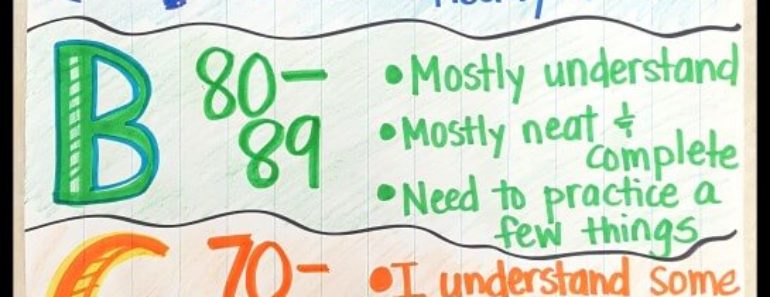 B 80- • Mostly understand
89 • Mostly neat &
complete
• Need to practice a
few things
C 70- • I understand some